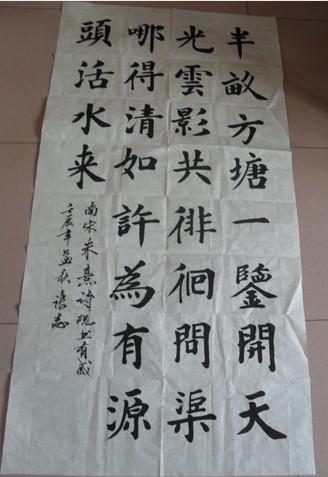 半畝方塘一鑒開天
光雲影共徘徊問渠
哪得清如許為有源
頭活水来
南宋朱熹诗观书有感
壬辰年孟秋